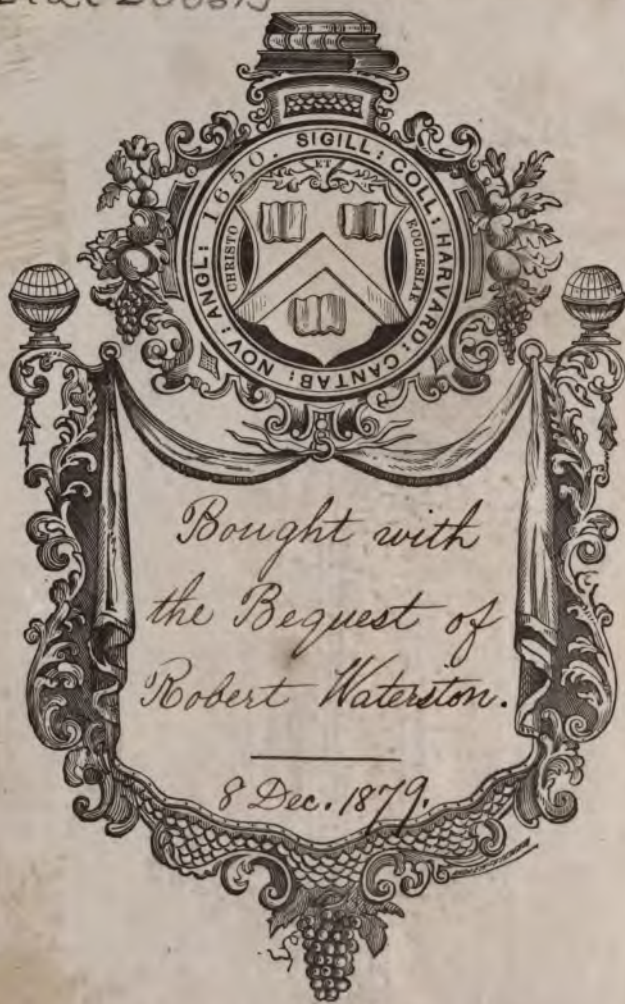 1650. SIGILL: COLL: HARVARD: CANTAB: NOV: ANGL:
ET
CHRISTO
ECCLESIAE
Bought with
the Bequest of
Robert Waterston.
8 Dec. 1879.